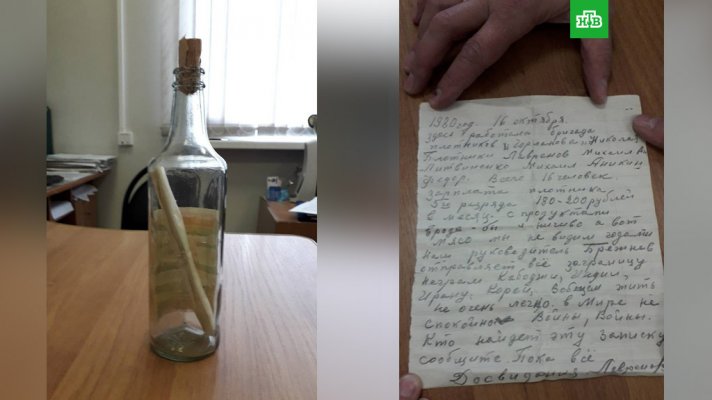 НТВ
1980 год. 16 октября.
здесь работала бригада
плотников Горланова Николая
Плотники Лавронов Михаил А.
Литвиненко Михаил Аникин
Федер. Всего 16 человек.
Зарплата плотника
5го разряда 180-200 рублей
в месяц с продуктами
вроде-бы и ничево а вот
мясо мы не видим годами
Нам руководитель Брежнев
отправляет всё заграницу
неграм Кабоджи, Индии,
Ирану. Кореи, Вобщем жить
не очень легко. в Мире не
спокойно Войны, Войны.
Кто найдет эту Записку
сообщите. Пока всё
Досвидания Лавронов